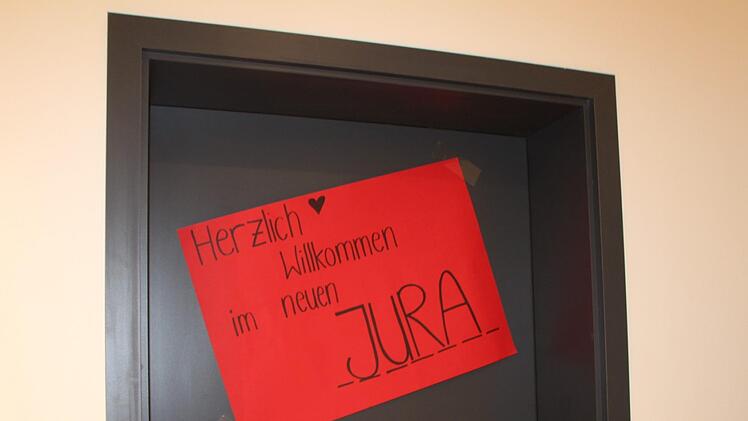 Herzlich ♥
Willkommen
im neuen
JURA